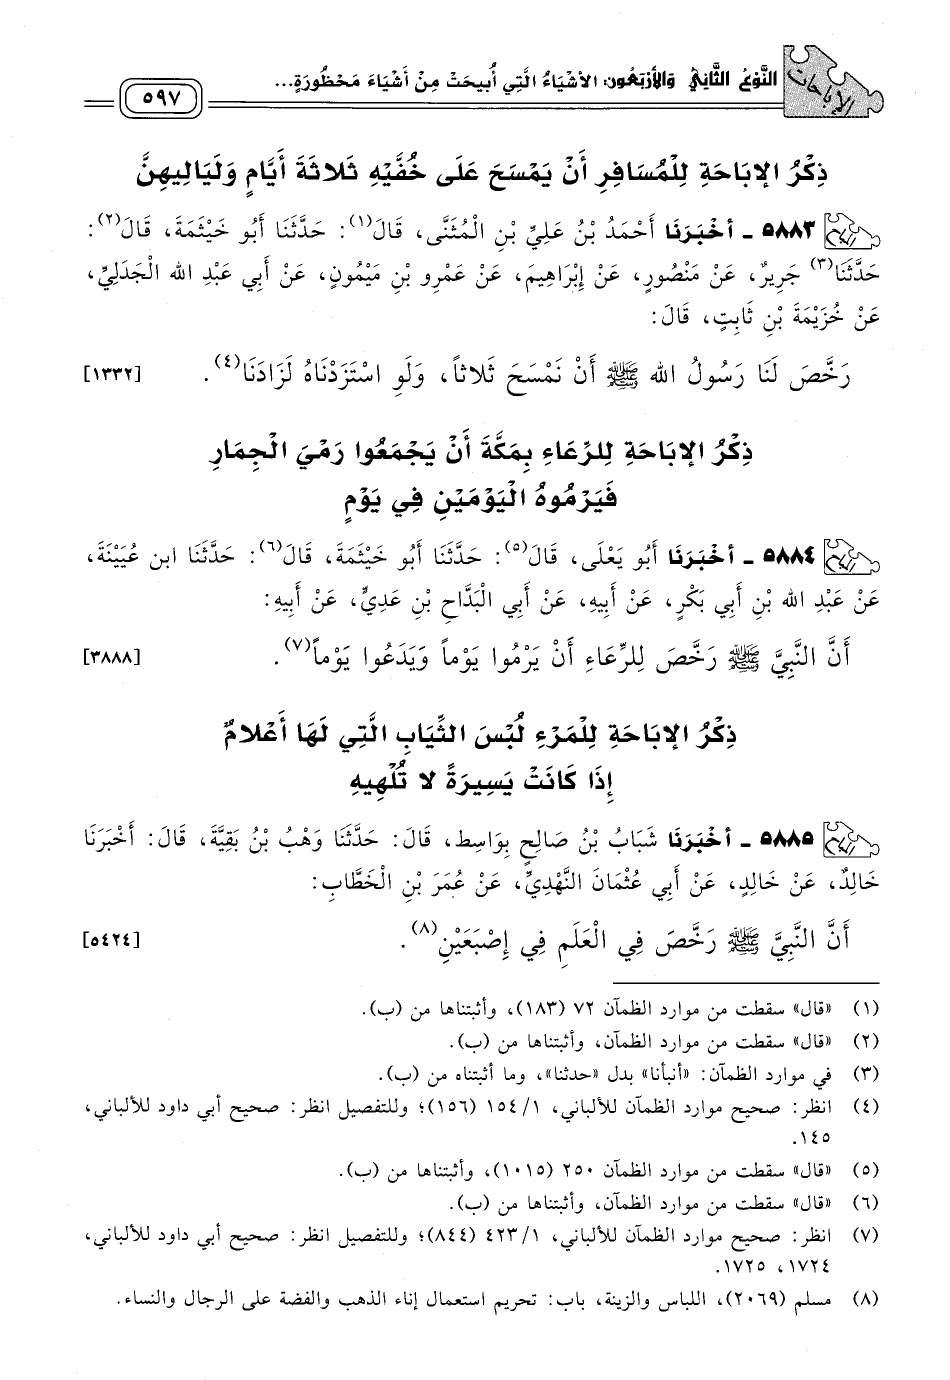 الإباحات
النَّوْعُ الثَّانِي وَالأَرْبَعُون: الأَشْيَاءُ الَّتِي أُبِيحَتْ مِنْ أَشْيَاءَ مَحْظُورَةٍ...
٥٩٧
ذِكْرُ الإِبَاحَةِ لِلْمُسَافِرِ أَنْ يَمْسَحَ عَلَى خُفَّيْهِ ثَلاثَةَ أَيَّامٍ وَلَيَالِيهِنَّ
٥٨٨٣ ـ أخْبَرَنَا أَحْمَدُ بْنُ عَلِيِّ بْنِ الْمُثَنَّى، قَالَ(١): حَدَّثَنَا أَبُو خَيْثَمَةَ، قَالَ(٢):
حَدَّثَنَا(٣) جَرِيرٌ، عَنْ مَنْصُورٍ، عَنْ إِبْرَاهِيمَ، عَنْ عَمْرِو بْنِ مَيْمُونٍ، عَنْ أَبِي عَبْدِ الله الْجَدَلِيِّ،
عَنْ خُزَيْمَةَ بْنِ ثَابِتٍ، قَالَ:
رَخَّصَ لَنَا رَسُولُ الله ﷺ أَنْ نَمْسَحَ ثَلاثاً، وَلَوِ اسْتَزَدْنَاهُ لَزَادَنَا(٤). [١٣٣٢]
ذِكْرُ الإِبَاحَةِ لِلرِّعَاءِ بِمَكَّةَ أَنْ يَجْمَعُوا رَمْيَ الْجِمَارِ
فَيَرْمُوهُ الْيَوْمَيْنِ فِي يَوْمٍ
٥٨٨٤ ـ أخْبَرَنَا أَبُو يَعْلَى، قَالَ(٥): حَدَّثَنَا أَبُو خَيْثَمَةَ، قَالَ(٦): حَدَّثَنَا ابن عُيَيْنَةَ،
عَنْ عَبْدِ الله بْنِ أَبِي بَكْرٍ، عَنْ أَبِيهِ، عَنْ أَبِي الْبَدَّاحِ بْنِ عَدِيٍّ، عَنْ أَبِيهِ:
أَنَّ النَّبِيَّ ﷺ رَخَّصَ لِلرِّعَاءِ أَنْ يَرْمُوا يَوْماً وَيَدَعُوا يَوْماً(٧). [٣٨٨٨]
ذِكْرُ الإِبَاحَةِ لِلْمَرْءِ لُبْسَ الثِّيَابِ الَّتِي لَهَا أَعْلامٌ
إِذَا كَانَتْ يَسِيرَةً لا تُلْهِيهِ
٥٨٨٥ ـ أخْبَرَنَا شَبَابُ بْنُ صَالِحٍ بِوَاسِط، قَالَ: حَدَّثَنَا وَهْبُ بْنُ بَقِيَّةَ، قَالَ: أَخْبَرَنَا
خَالِدٌ، عَنْ خَالِدٍ، عَنْ أَبِي عُثْمَانَ النَّهْدِيِّ، عَنْ عُمَرَ بْنِ الْخَطَّابِ:
أَنَّ النَّبِيَّ ﷺ رَخَّصَ فِي الْعَلَمِ فِي إِصْبَعَيْنِ(٨). [٥٤٢٤]
(١) «قال» سقطت من موارد الظمآن ٧٢ (١٨٣)، وأثبتناها من (ب).
(٢) «قال» سقطت من موارد الظمآن، وأثبتناها من (ب).
(٣) في موارد الظمآن: «أنبأنا» بدل «حدثنا»، وما أثبتناه من (ب).
(٤) انظر: صحيح موارد الظمآن للألباني، ١/ ١٥٤ (١٥٦)؛ وللتفصيل انظر: صحيح أبي داود للألباني،
١٤٥.
(٥) «قال» سقطت من موارد الظمآن ٢٥٠ (١٠١٥)، وأثبتناها من (ب).
(٦) «قال» سقطت من موارد الظمآن، وأثبتناها من (ب).
(٧) انظر: صحيح موارد الظمآن للألباني، ١/ ٤٢٣ (٨٤٤)؛ وللتفصيل انظر: صحيح أبي داود للألباني،
١٧٢٤، ١٧٢٥.
(٨) مسلم (٢٠٦٩)، اللباس والزينة، باب: تحريم استعمال إناء الذهب والفضة على الرجال والنساء.